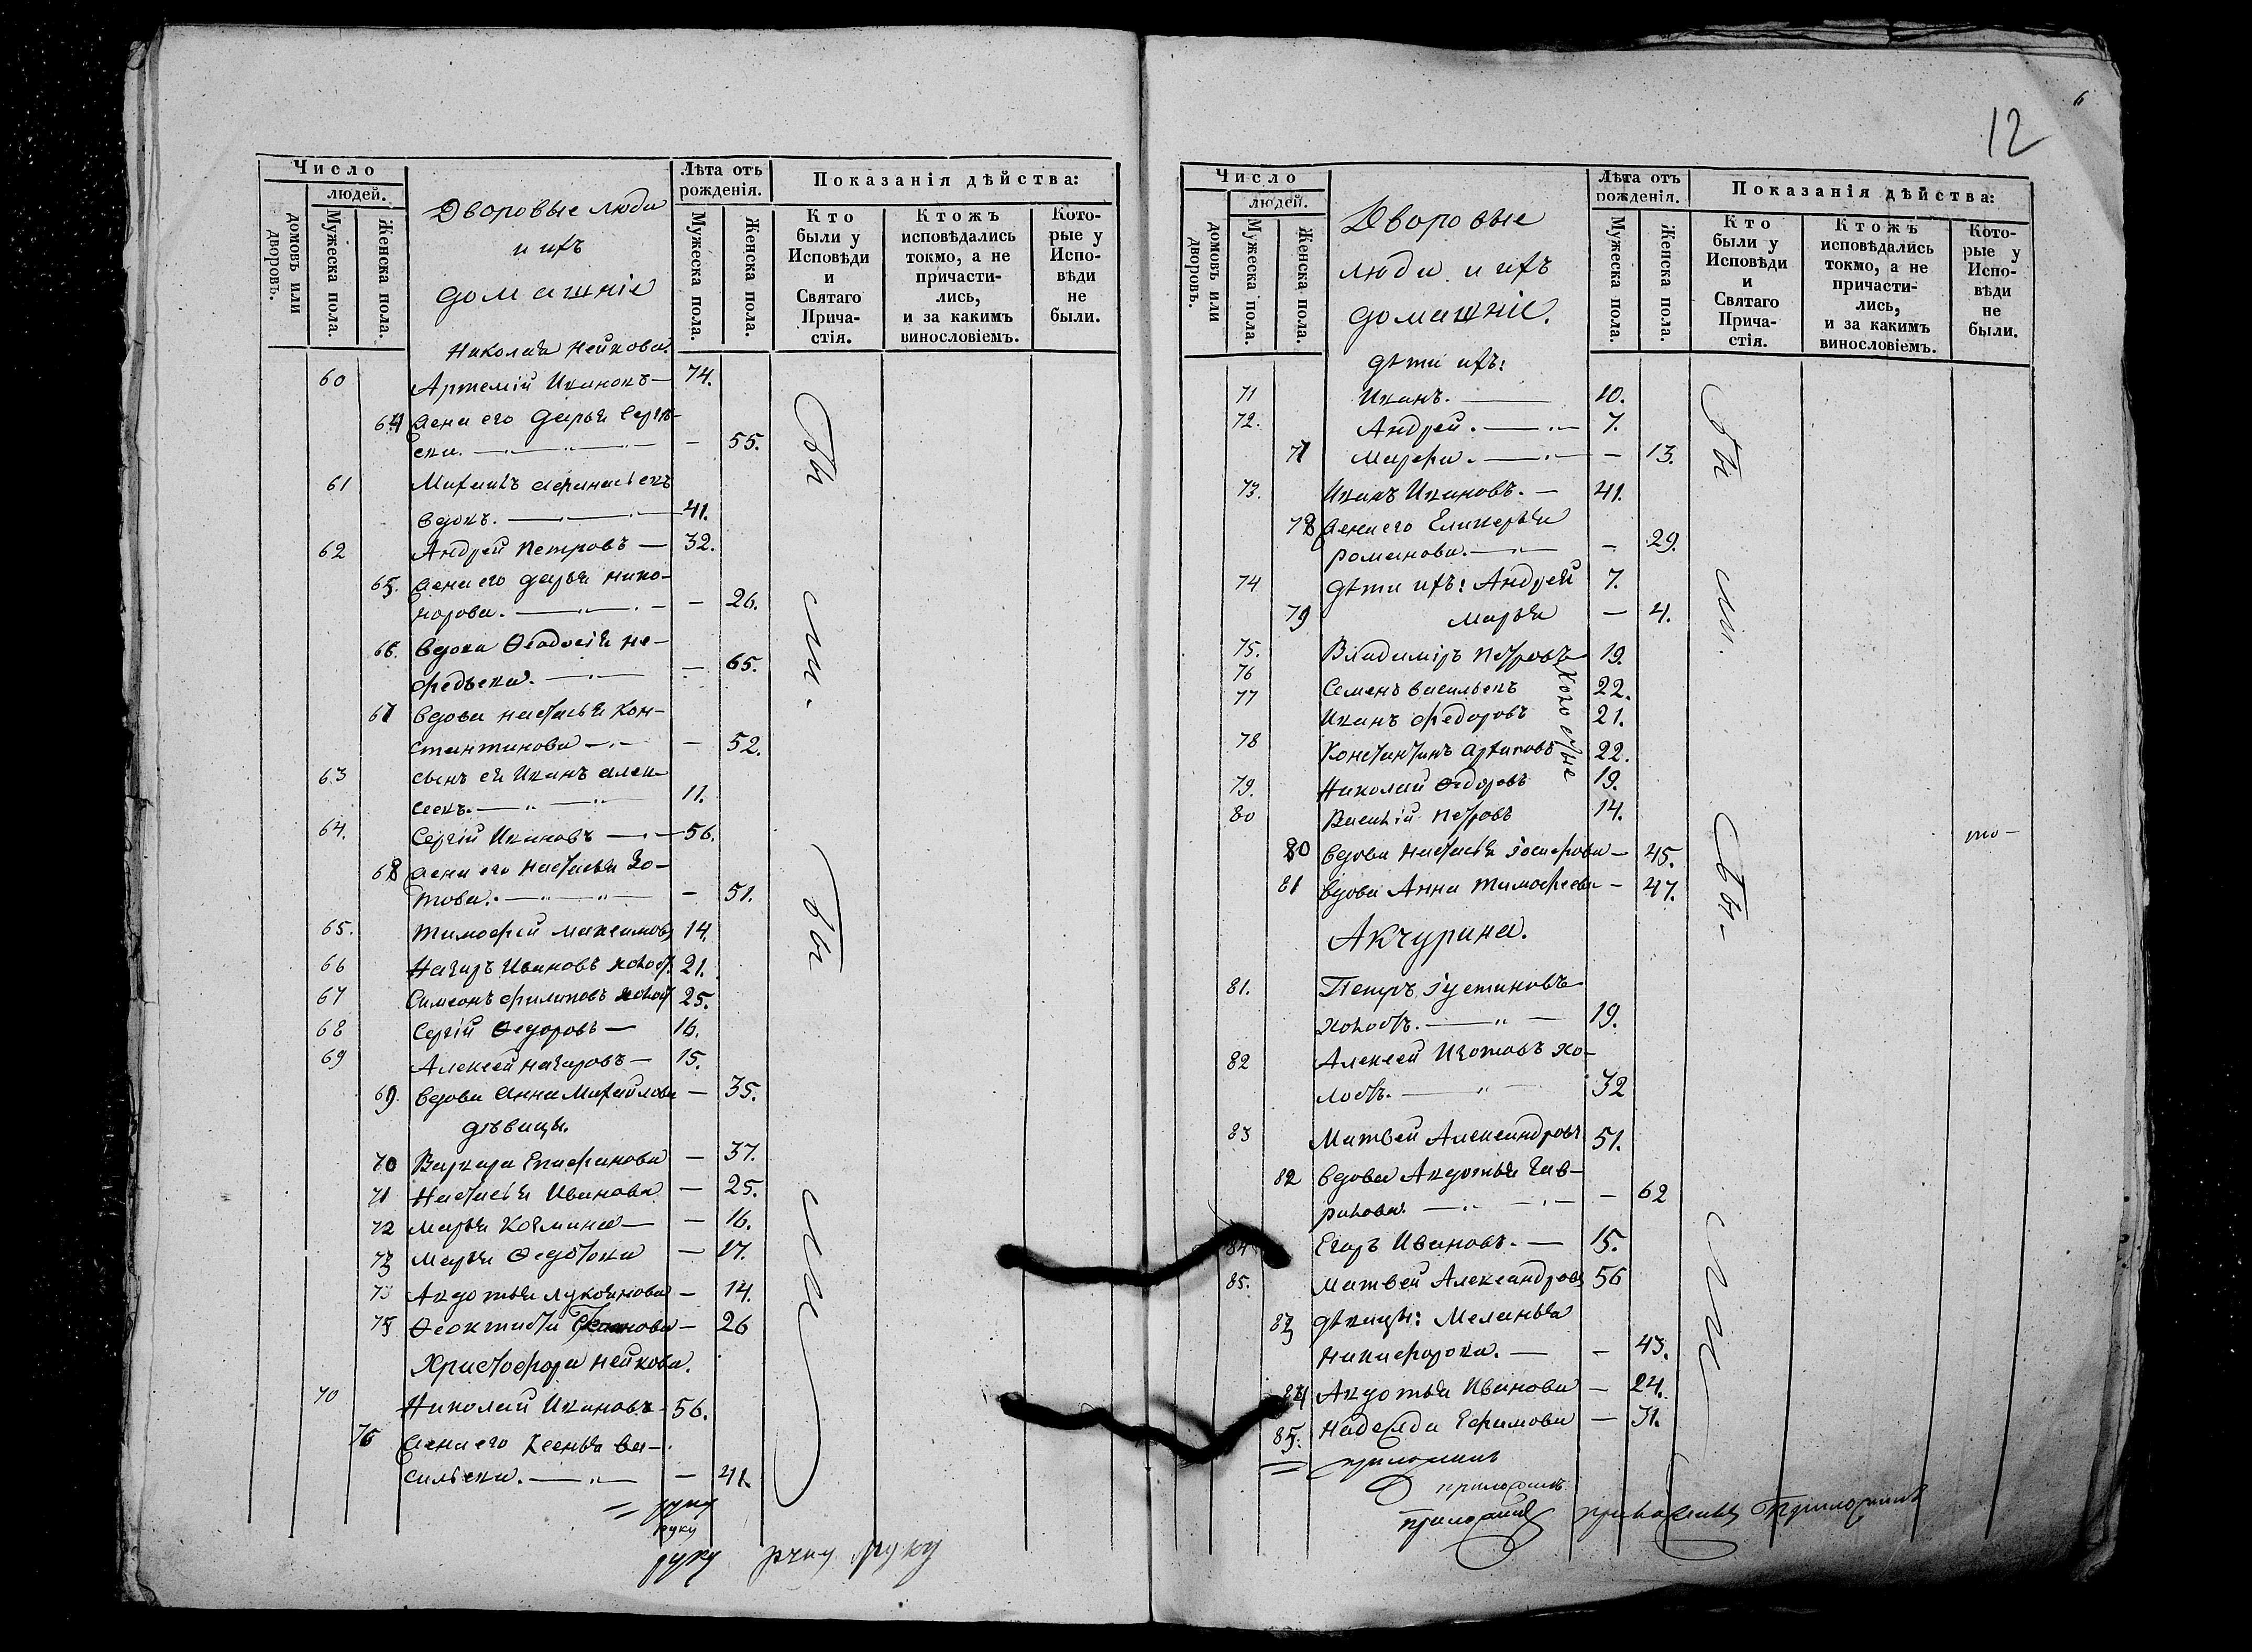 Число
людей.
домовъ или дворовъ.
Мужеска пола.
Женска пола.
Дворовые люди
и ихъ
домашніе
Николая Нейкова.
Лѣта отъ рожденія.
Мужеска пола.
Женска пола.
Показанія дѣйства:
Кто были у Исповѣди и Святаго Причастія.
Ктожъ исповѣдались токмо, а не причастились, и за какимъ винословіемъ.
Которые у Исповѣди не были.
60 Артемій Ивановъ — 74.
64 жена его Дарья Сергѣ-
ева. — 55.
61 Михаилъ Афанасьевъ
вдовъ. — 41.
62 Андрей Петровъ — 32.
65. жена его ДарьяНика-
норова. — 26.
66. вдова Ѳеодосія Не-
федьева. — 65.
67 вдова Настасья Кон-
стантинова — 52.
63 сынъ ея Иванъ Алек-
сеевъ. — 11.
64. Сергій Ивановъ — 56.
68 жена его Настасья Зо-
това. — 51.
65. Тимофей Максимовъ 14.
66 Назаръ Ивановъ холост. 21.
67 Симеонъ Филиповъ холост 25.
68 Сергій Ѳедоровъ — 16.
69 Алексей Назаровъ — 15.
69. вдова Анна Михайлова — 35.
дѣвицы.
70 Варвара Епифанова — 37.
71 Настасья Иванова — 25.
72 Марья Козмина — 16.
73 Марья Ѳедотова — 17.
73 Авдотья Лукоянова — 14.
75 Ѳеоктиста — 26
Христофора Нейкова.
70 Николай Ивановъ — 56.
76 жена его Ксенья Ва-
сильева. — 41.
бы
ли.
бы
ли
руку
руку
руку руку руку
12
6
Число
людей.
домовъ или дворовъ.
Мужеска пола.
Женска пола.
Дворовые
люди и ихъ
домашніе.
Лѣта отъ рожденія.
Мужеска пола.
Женска пола.
Показанія дѣйства:
Кто были у Исповѣди и Святаго Причастія.
Ктожъ исповѣдались токмо, а не причастились, и за какимъ винословіемъ.
Которые у Исповѣди не были.
дѣти ихъ:
71 Иванъ. — 10.
72. Андрей. — 7.
77 Марфа. — 13.
73. Иванъ Ивановъ. — 41.
78 жена его Гликерья
Романова. — 29.
74 дѣти ихъ: Андрей 7.
79 Марья — 4.
75. Владиміръ Петровъ 19.
76 Семенъ Васильевъ 22.
77 Иванъ Федоровъ 21.
78 Константинъ Архиповъ 22.
79. Николай Ѳедоровъ 19.
80 Василій Петровъ 14.
холостые
80 вдова Настасья Іосифова — 45.
81 вдова Анна Тимофеева — 47.
Акчурина.
81. Петръ Іустиновъ
холостъ. — 19.
82 Алексей Изотовъ хо-
лостъ. — 32
83 Матвей Александровъ 51.
82 вдова Авдотья Гав-
рилова. — 62
84 Егоръ Ивановъ. — 15.
85. Матвей Александровъ 56
83 дѣвицы: Меланья
Никифорова. — 43.
84 Авдотья Иванова — 24.
85. Надежда Ефимова — 31.
бы
ли.
бы-
ли
то-
приложилъ
приложилъ
приложилъ приложилъ приложилъ